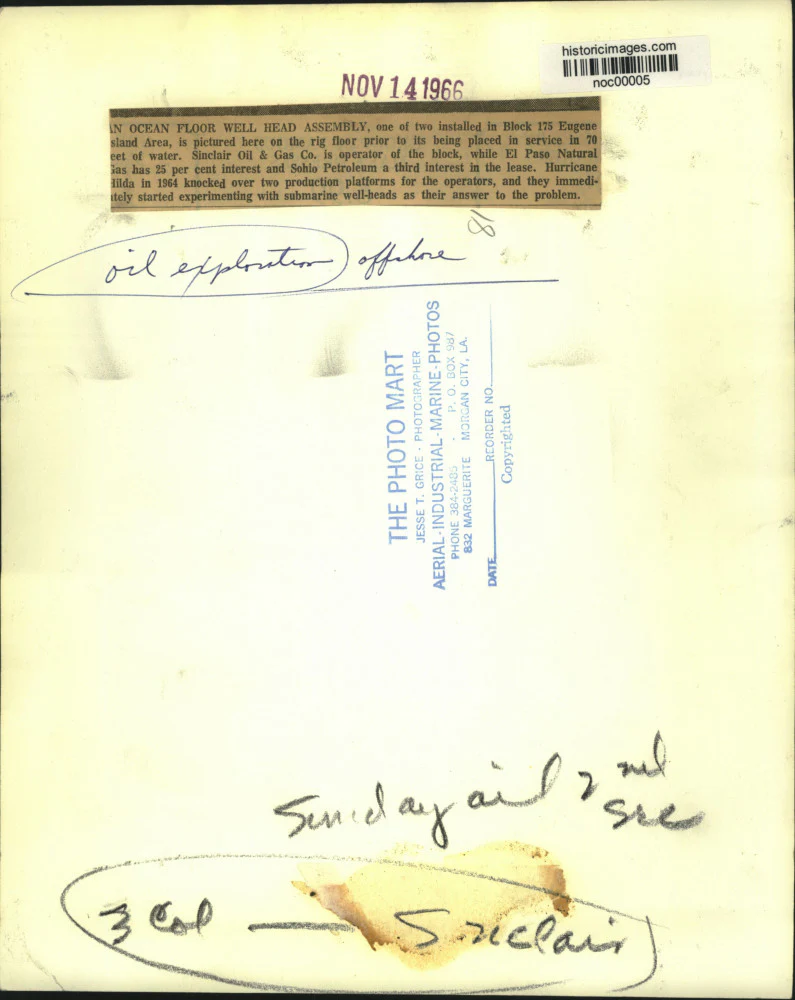 historicimages.com
noc00005
NOV 14 1966
N OCEAN FLOOR WELL HEAD ASSEMBLY, one of two installed in Block 175 Eugene
sland Area, is pictured here on the rig floor prior to its being placed in service in 70
eet of water. Sinclair Oil & Gas Co. is operator of the block, while El Paso Natural
Gas has 25 per cent interest and Sohio Petroleum a third interest in the lease. Hurricane
Hilda in 1964 knocked over two production platforms for the operators, and they immedi-
tely started experimenting with submarine well-heads as their answer to the problem.
81
oil exploration offshore
THE PHOTO MART
JESSE T. GRICE - PHOTOGRAPHER
AERIAL-INDUSTRIAL-MARINE-PHOTOS
PHONE 384-2485 - P. O. BOX 987
832 MARGUERITE MORGAN CITY, LA.
DATE REORDER NO.
Copyrighted
Sunday oil 2nd
sec
3 Col — Sinclair